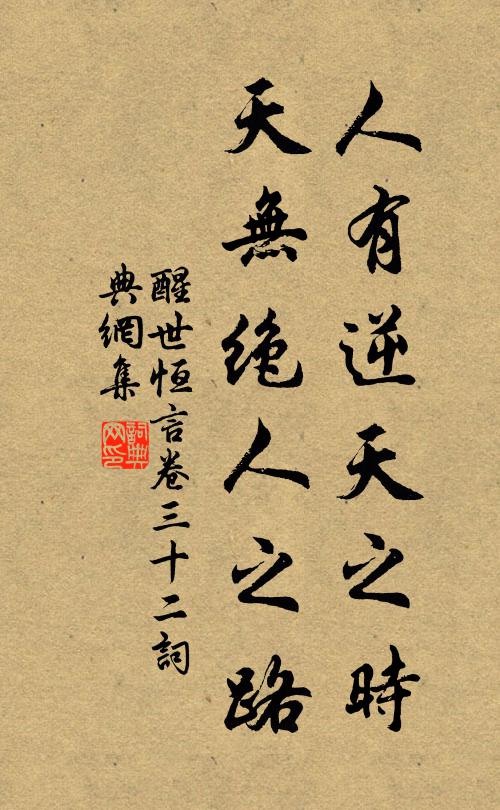 人有逆天之時
天無絶人之路
醒世恒言卷三十二詞
典網集
詞典
网印